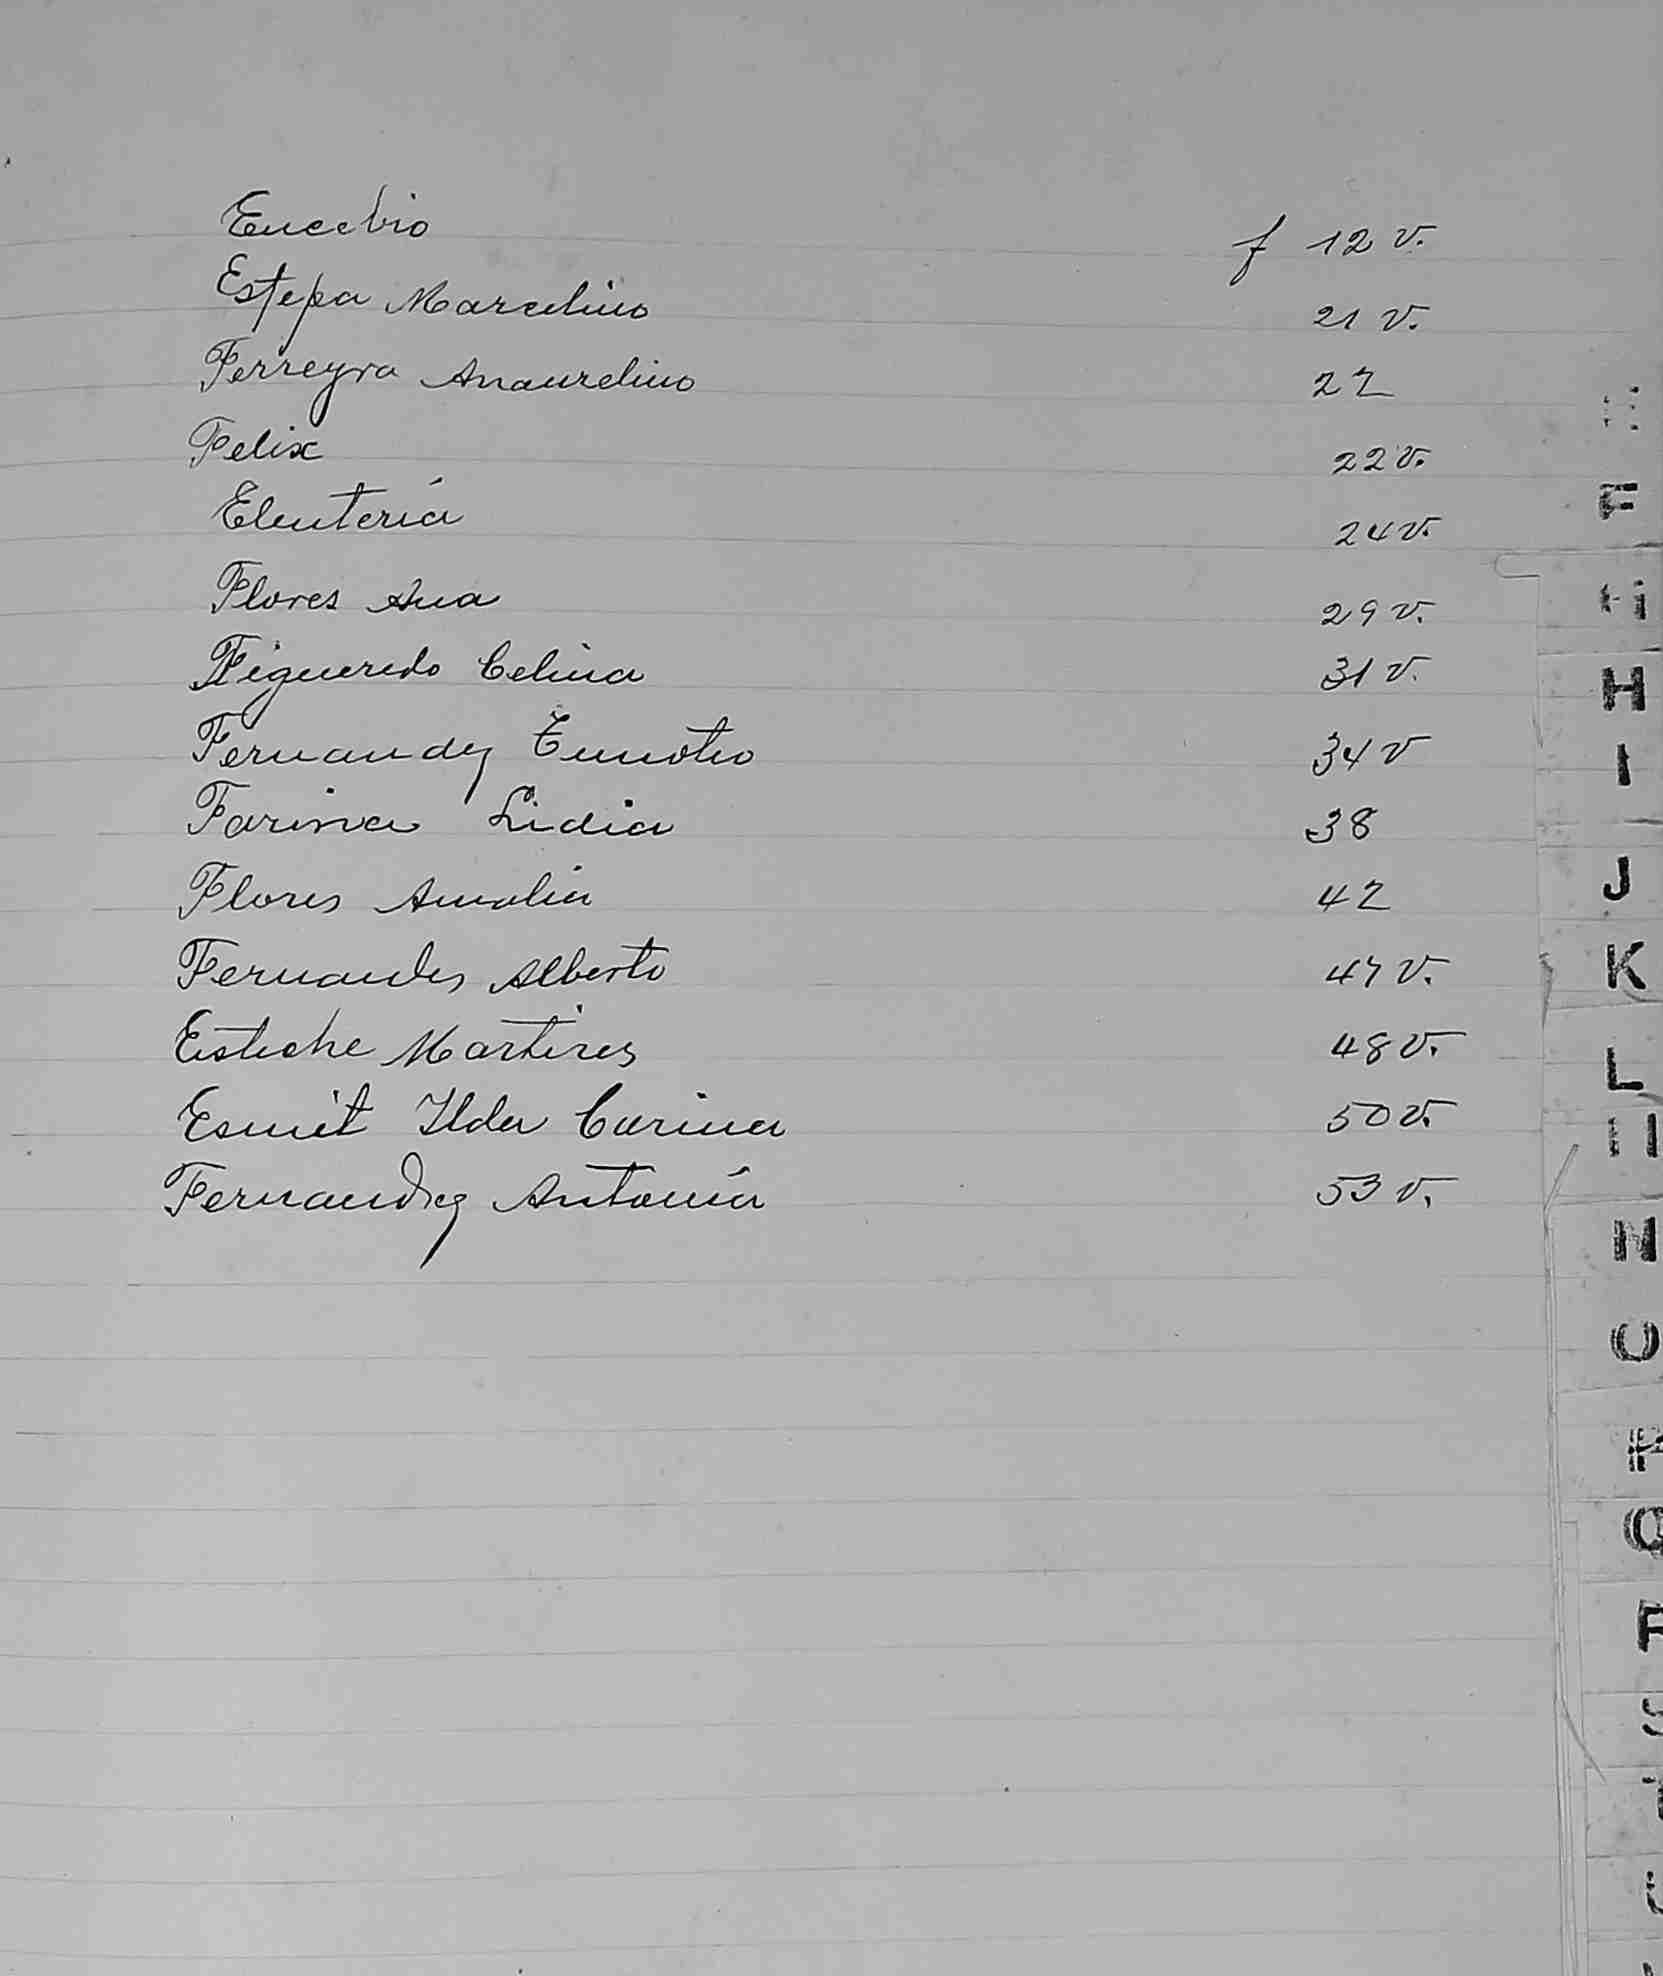 Eucebio f 12 v.
Estepa Marcelino 21 v.
Ferreyra Anaurelino 22
Felix 22 v.
Eleuteria 24 v.
Flores Ana 29 v.
Figueredo Celina 31 v.
Fernandez 34 v
Farina Lidia 38
Flores Amalia 42
Fernandes Alberto 47 v.
Esteche Martires 48 v.
Esmit Ilda Carina 50 v.
Fernandez Antonia 53 v.
F
H
I
J
K
L
M
N
O
P
Q
R
S
T
U